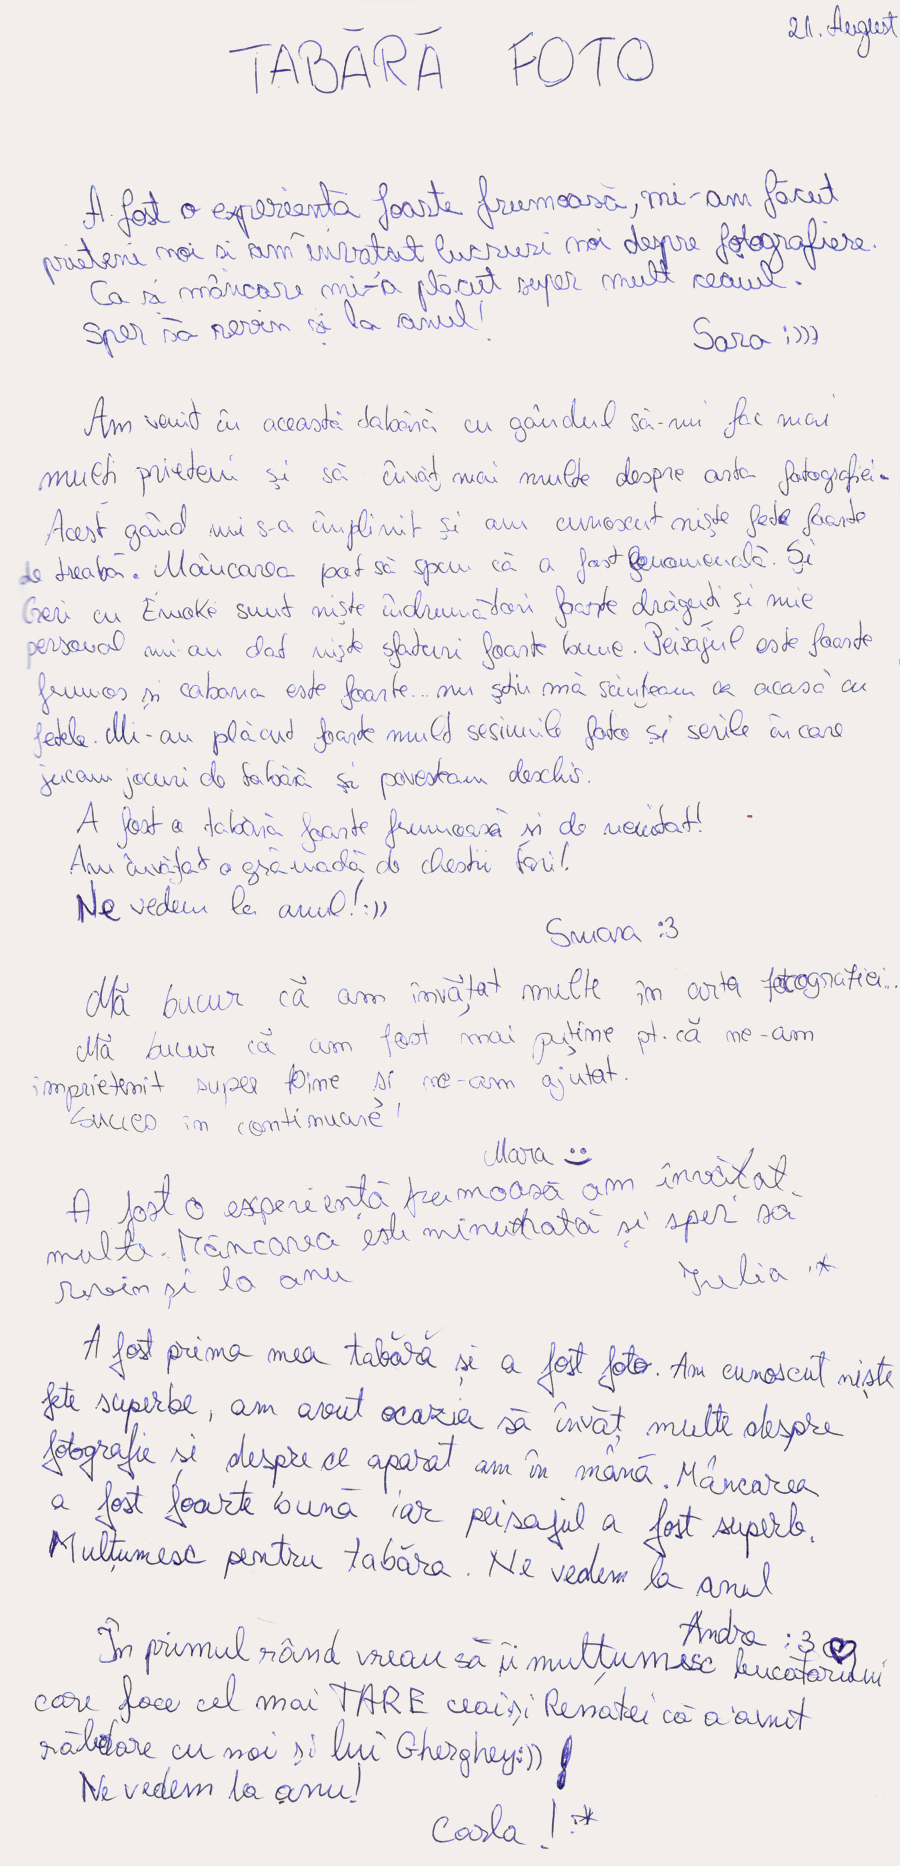 21. August
TABĂRĂ FOTO
A fost o experientă foarte frumoasă, mi-am făcut
prieteni noi si am învatat lucruri noi despre fotografiere.
Ca si mâncare mi-a plăcut super mult ceaiul.
Sper să revin și la anul!
Sara :)))
Am venit în această tabără cu gândul să-mi fac mai
mulți prieteni și să învăț mai multe despre arta fotografiei.
Acest gând mi s-a împlinit și am cunoscut niște fete foarte
de treabă. Mâncarea pot să spun că a fost fenomenală. Și
Geri cu Emoke sunt niște îndrumători foarte drăguți și mie
personal mi-au dat niște sfaturi foarte bune. Peisajul este foarte
frumos și cabana este foarte... nu știu mă sâmțeam ca acasă cu
fetele. Mi-au plăcut foarte mult sesiunile foto și serile în care
jucam jocuri de tabără și povesteam deschis.
A fost o tabără foarte frumoasă și de neuitat!
Am învățat o grămadă de chestii
Ne vedem la anul! :))
Smara :3
Mă bucur că am învățat multe în arta fotografiei...
Mă bucur că am fost mai puține pt. că ne-am
imprietenit super bine si ne-am ajutat.
Succes in continuare!
Mara
A fost o experiență frumoasă am învățat
multe. Mâncarea este minunată și sper să
revin și la anu
Iulia :*
A fost prima mea tabără și a fost foto. Am cunoscut niște
fete superbe, am avut ocazia să învăț multe despre
fotografie si despre ce aparat am în mână. Mâncarea
a fost foarte bună iar peisajul a fost superb.
Mulțumesc pentru tabăra. Ne vedem la anul
Andra :3
În primul rând vreau să îi mulțumesc bucătarului
care face cel mai TARE ceai și Renatei că a avut
răbdare cu noi și lui Gherghey:))!
Ne vedem la anu!
Carla! :*